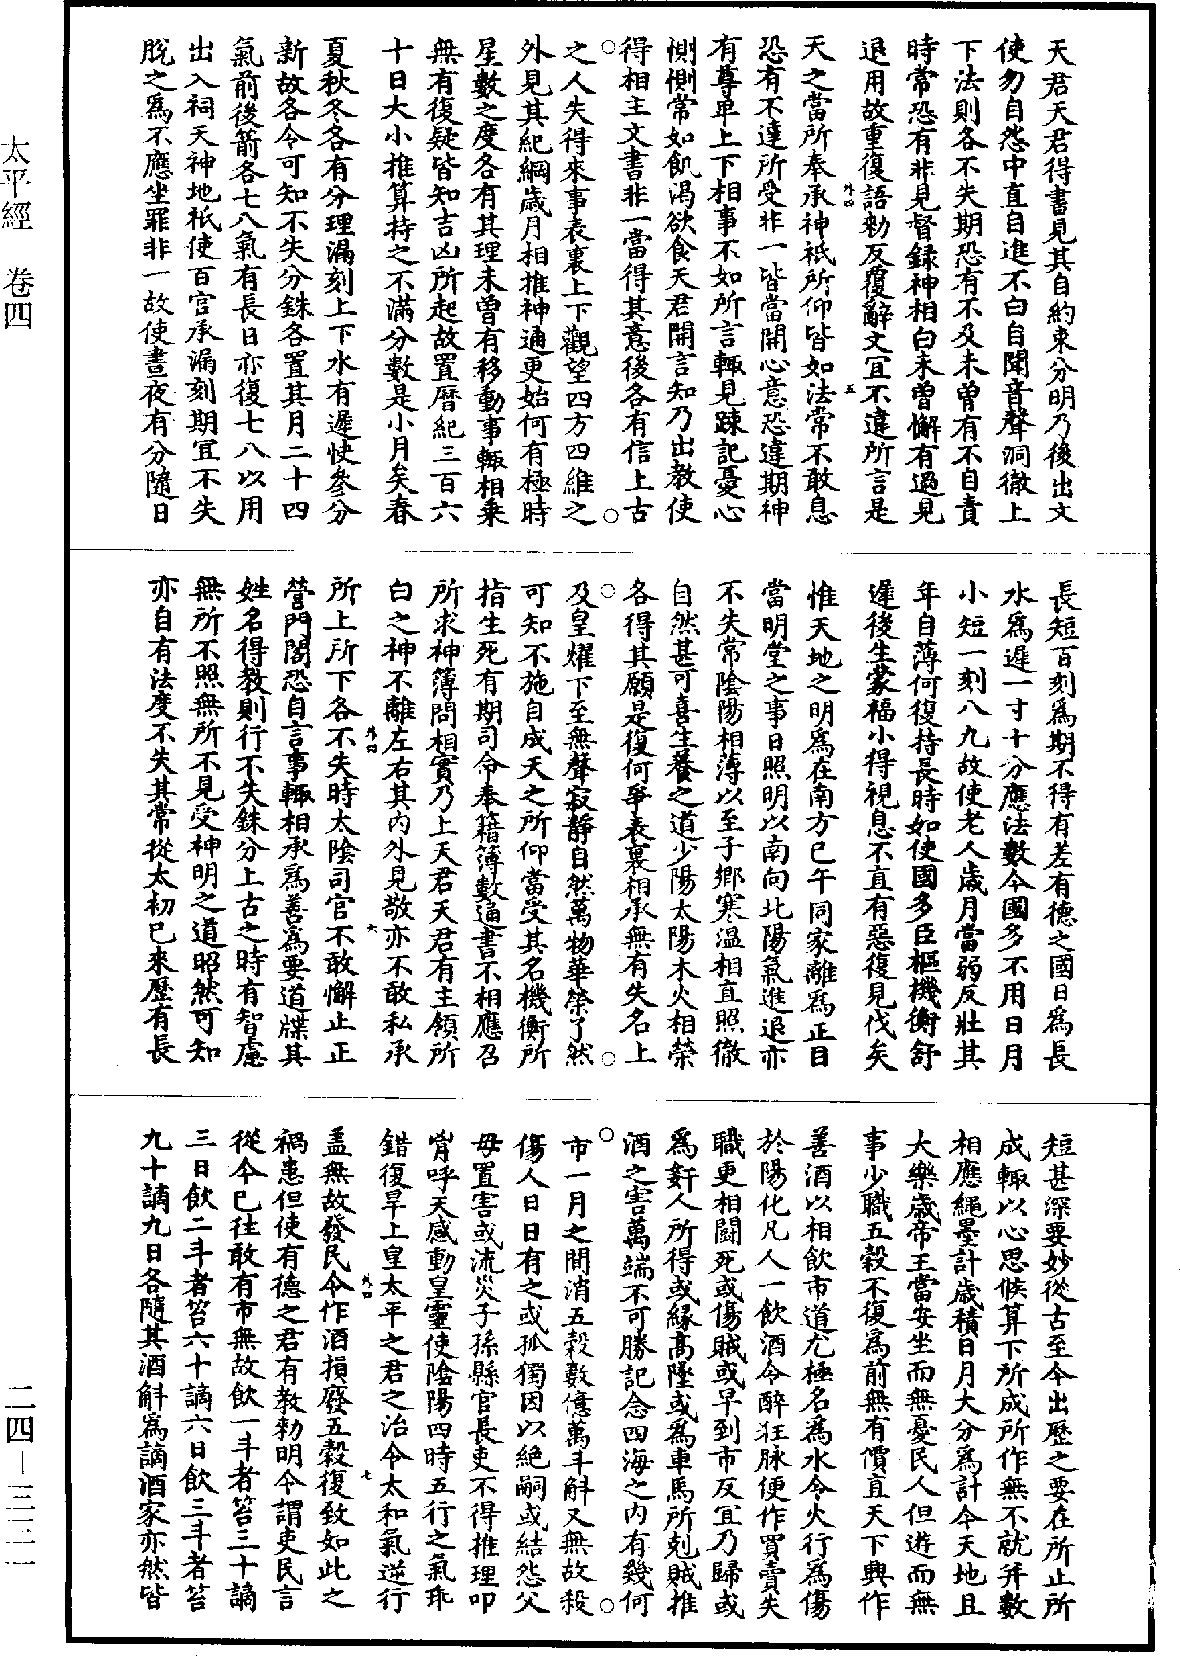 天君天君得書見其自約束分明乃後出文
使勿自怨中直自進不白自聞音聲洞徹上
下法則各不失期恐有不及未曾有不自責
時常恐有非見督錄神相白未曾懈有過見
退用故重復語勑反覆辭文宜不違所言是
天之當所奉承神祇所仰皆如法常不敢息
恐有不達所受非一皆當開心意恐違期神
有尊卑上下相事不如所言輙見踈記憂心
惻惻常如飢渴欲食天君開言知乃出教使
得相主文書非一當得其意後各有信上古
之人失得來事表裏上下觀望四方四維之
外見其紀綱歲月相推神通更始何有極時
星數之度各有其理未曾有移動事輙相乗
無有復疑皆知吉凶所起故置曆紀三百六
十日大小推算持之不滿分數是小月矣春
夏秋冬各有分理漏刻上下水有遲快參分
新故各令可知不失分銖各置其月二十四
氣前後箭各七八氣有長日亦復七八以用
出入祠天神地祇使百官承漏刻期宜不失
脫之爲不應坐罪非一故使晝夜有分隨日
長短百刻爲期不得有差有德之國日爲長
水爲遲一寸十分應法數今國多不用日月
小短一刻八九故使老人歲月當弱反壯其
年自薄何復持長時如使國多臣樞機衡舒
遲後生蒙福小得視息不直有惡復見伐矣
惟天地之明爲在南方巳午同家離爲正目
當明堂之事日照明以南向北陽氣進退亦
不失常陰陽相薄以至子鄉寒温相直照徹
自然甚可喜生養之道少陽太陽木火相榮
各得其願是復何爭表裏相承無有失名上
及皇燿下至無聲寂靜自然萬物華榮了然
可知不施自成天之所仰當受其名機衡所
指生死有期司命奉籍簿數通書不相應召
所求神簿問相實乃上天君天君有主領所
白之神不離左右其内外見敬亦不敢私承
所上所下各不失時太陰司官不敢懈止正
營門閤恐自言事輙相承爲善爲要道牒其
姓名得教則行不失銖分上古之時有智慮
無所不照無所不見受神明之道昭然可知
亦自有法度不失其常從太初已來歷有長
短甚深要妙從古至今出歷之要在所止所
成輙以心思候算下所成所作無不就并數
相應繩墨計歲積日月大分爲計今天地且
大樂歲帝王當安坐而無憂民人但遊而無
事少職五穀不復爲前無有價直天下興作
善酒以相飲市道尤極名爲水令火行爲傷
於陽化凡人一飲酒令醉狂脉便作買賣失
職更相鬪死或傷賊或早到市反宜乃歸或
爲姧人所得或緣高墜或爲車馬所剋賊推
酒之害萬端不可勝記念四海之内有幾何
市一月之間消五穀數億萬斗斛又無故殺
傷人日日有之或孤獨因以絶嗣或結怨父
母置害或流災子孫縣官長吏不得推理叩
胷呼天感動皇靈使陰陽四時五行之氣乖
錯復旱上皇太平之君之治令太和氣逆行
盖無故發民令作酒損廢五穀復致如此之
禍患但使有德之君有教勑明令謂吏民言
從今已往敢有市無故飲一斗者笞三十謫
三日飲二斗者笞六十謫六日飲三斗者笞
九十謫九日各隨其酒斛爲謫酒家亦然皆
外四 五
外四 六
外四 七
太平經 卷四
二四—三二一